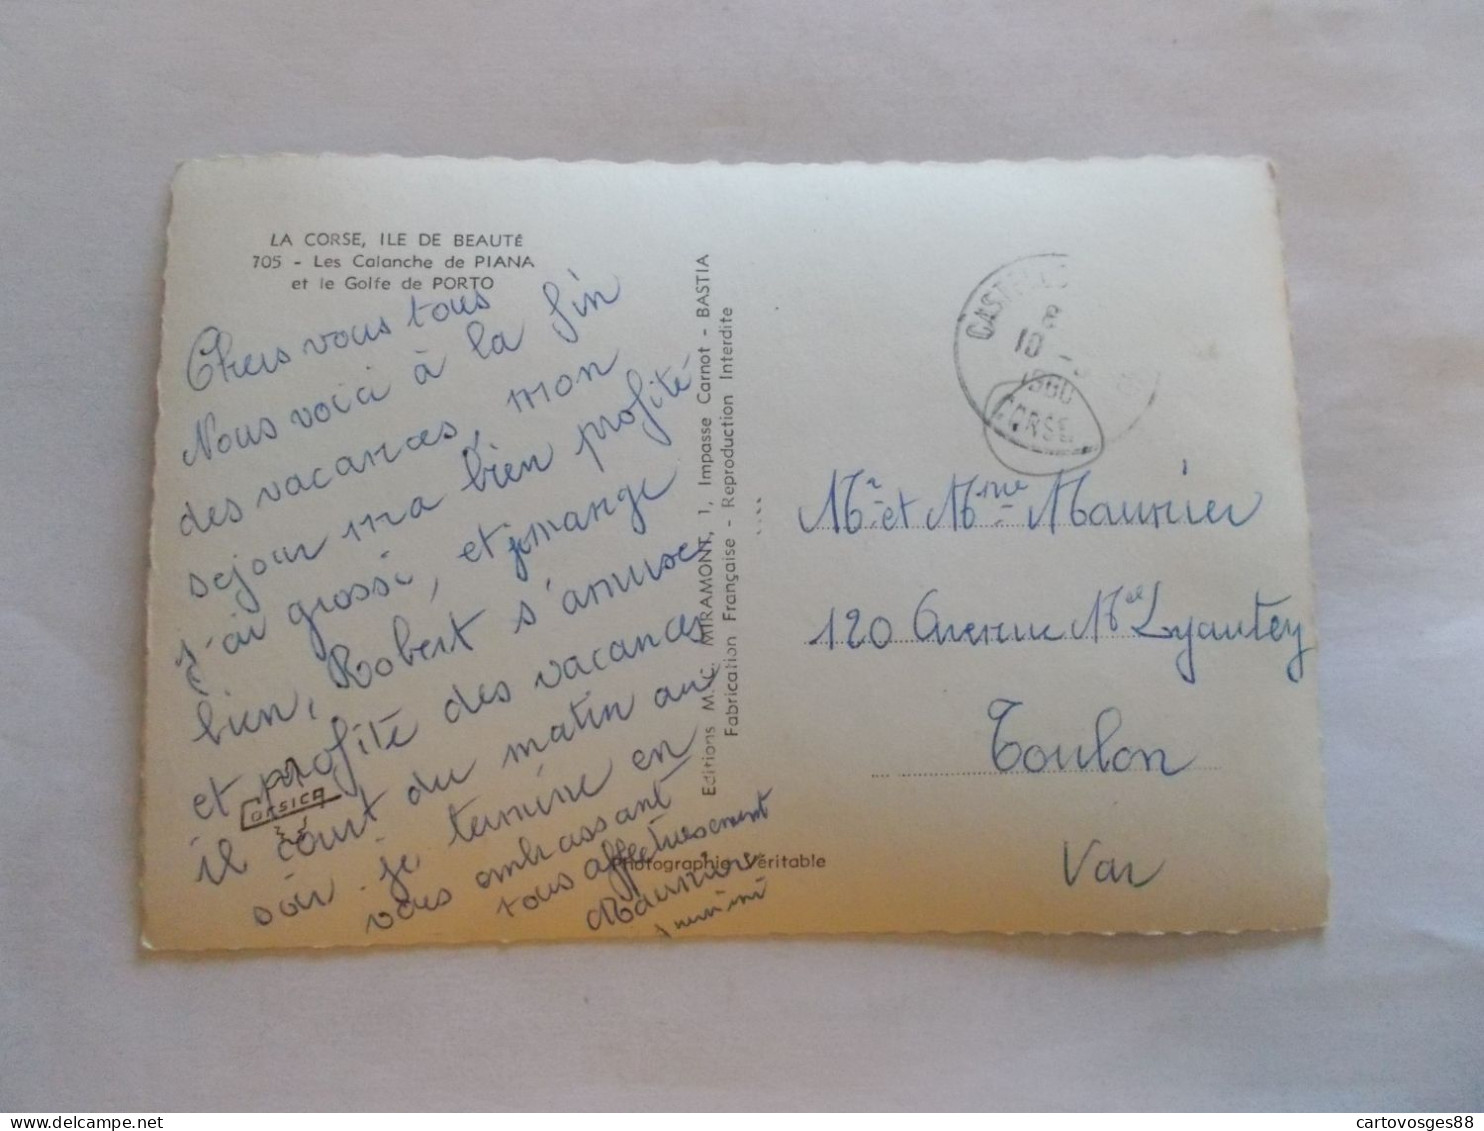 LA CORSE, ILE DE BEAUTÉ
705 - Les Calanche de PIANA
et le Golfe de PORTO
Chers vous tous
Nous voici à la fin
des vacances, mon
sejour m'a bien profité
j'ai grossi, et je mange
bien, Robert s'amuse
et profite des vacances
il court du matin au
soir. je termine en
vous embrassant
tous affectueusement
CORSICA
Editions M. C. MIRAMONT, 1, Impasse Carnot - BASTIA
Fabrication Française - Reproduction Interdite
Photographie Véritable
10
1960
CORSE
Mr et Mme Maurier
120 Avenue Mal Lyautey
Toulon
Var
cartovosges88